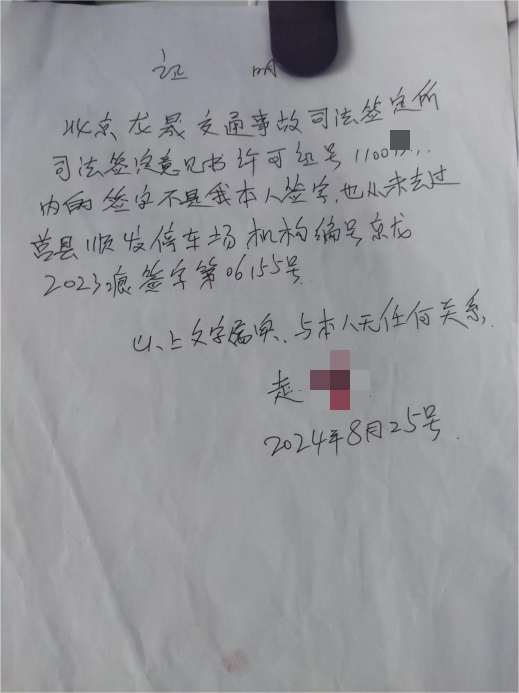 证 明
北京龙晟交通事故司法鉴定所
司法鉴定意见书许可证号1100
内的签字不是我本人签字,也从未去过
莒县顺发停车场机构编号京龙
2023痕签字第06155号
以上文字属实、与本人无任何关系,
赵
2024年8月25号